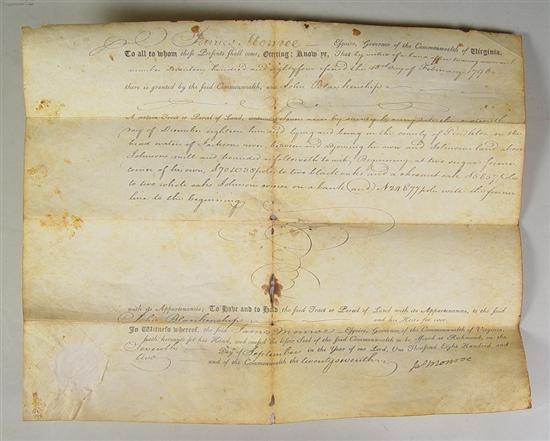 James Monroe Esquire, Governor of the Commonwealth of Virginia,
To all to whom these Presents shall come, Greeting: Know ye, That by virtue of a Land Office Treasury warrant
number Seventeen hundred and eightyfour issued the day of February 1796
there is granted by the said Commonwealth, unto John Blankenship
A certain Tract or Parcel of Land, containing acres by survey
day of December eighteen hundred lying and being in the county of Pendleton on the
head water of Jacksons river between and adjoining his own and Johnsons land above
Johnsons mill and bounded as followeth to wit, Beginning at two
corner of his own, poles to two black oaks and a chesnut oak N
to two white oaks Johnsons corner on a bank and poles with the
line to the beginning
with its Appurtenances; To Have and to Hold the said Tract or Parcel of Land with its Appurtenances, to the said
John Blankenship and his Heirs for ever.
In Witness whereof, the said James Monroe Esquire, Governor of the Commonwealth of Virginia,
hath hereunto set his Hand, and caused the lesser Seal of the said Commonwealth to be affixed at Richmond, on the
Seventh Day of September in the Year of our Lord, One Thousand Eight Hundred and
two and of the Commonwealth the twentyseventh
Jas Monroe